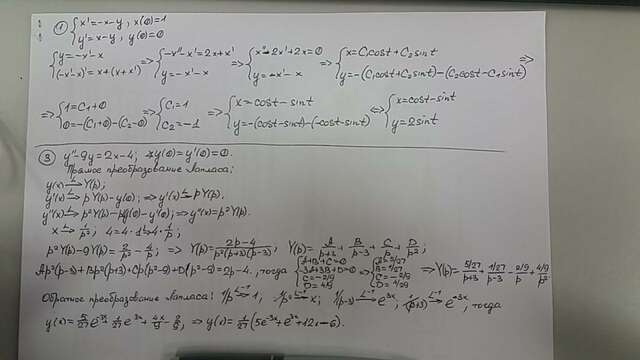 ① { x' = -x-y, x(0)=1
y' = x-y, y(0)=0
{ y = -x'-x
(-x'-x)' = x+(x+x') => { -x''-x' = 2x+x'
y = -x'-x => { x''+2x'+2x=0
y = -x'-x => { x = C₁cost + C₂sint
y = -(C₁cost + C₂sint) - (C₂cost - C₁sint) =>
=> { 1 = C₁+0
0 = -(C₁+0) - (C₂-0) => { C₁ = 1
C₂ = -1 => { x = cost - sint
y = -(cost-sint) - (-cost-sint) <=> { x = cost - sint
y = 2sint
③ y'' - 9y = 2x - 4; y(0) = y'(0) = 0.
Прямое преобразование Лапласа:
y(x) → Y(p);
y'(x) → pY(p) - y(0); => y'(x) → pY(p).
y''(x) → p²Y(p) - py(0) - y'(0); => y''(x) = p²Y(p).
x → 1/p²; 4 = 4·1 → 4·1/p;
p²Y(p) - 9Y(p) = 2/p² - 4/p; => Y(p) = (2p-4)/(p²(p+3)(p-3)), Y(p) = A/(p+3) + B/(p-3) + C/p + D/p²;
Ap²(p-3) + Bp²(p+3) + Cp(p²-9) + D(p²-9) = 2p-4, тогда { A+B+C=0
-3A+3B+D=0
C = -2/9
D = 4/9 => { A = 5/27
B = 1/27
C = -2/9
D = 4/9 => Y(p) = (5/27)/(p+3) + (1/27)/(p-3) - (2/9)/p + (4/9)/p².
Обратное преобразование Лапласа: 1/p → 1, 1/p² → x; 1/(p-3) → e³ˣ, 1/(p+3) → e⁻³ˣ, тогда
y(x) = 5/27 e⁻³ˣ + 1/27 e³ˣ + 4x/9 - 2/9; => y(x) = 1/27 (5e⁻³ˣ + e³ˣ + 12x - 6).